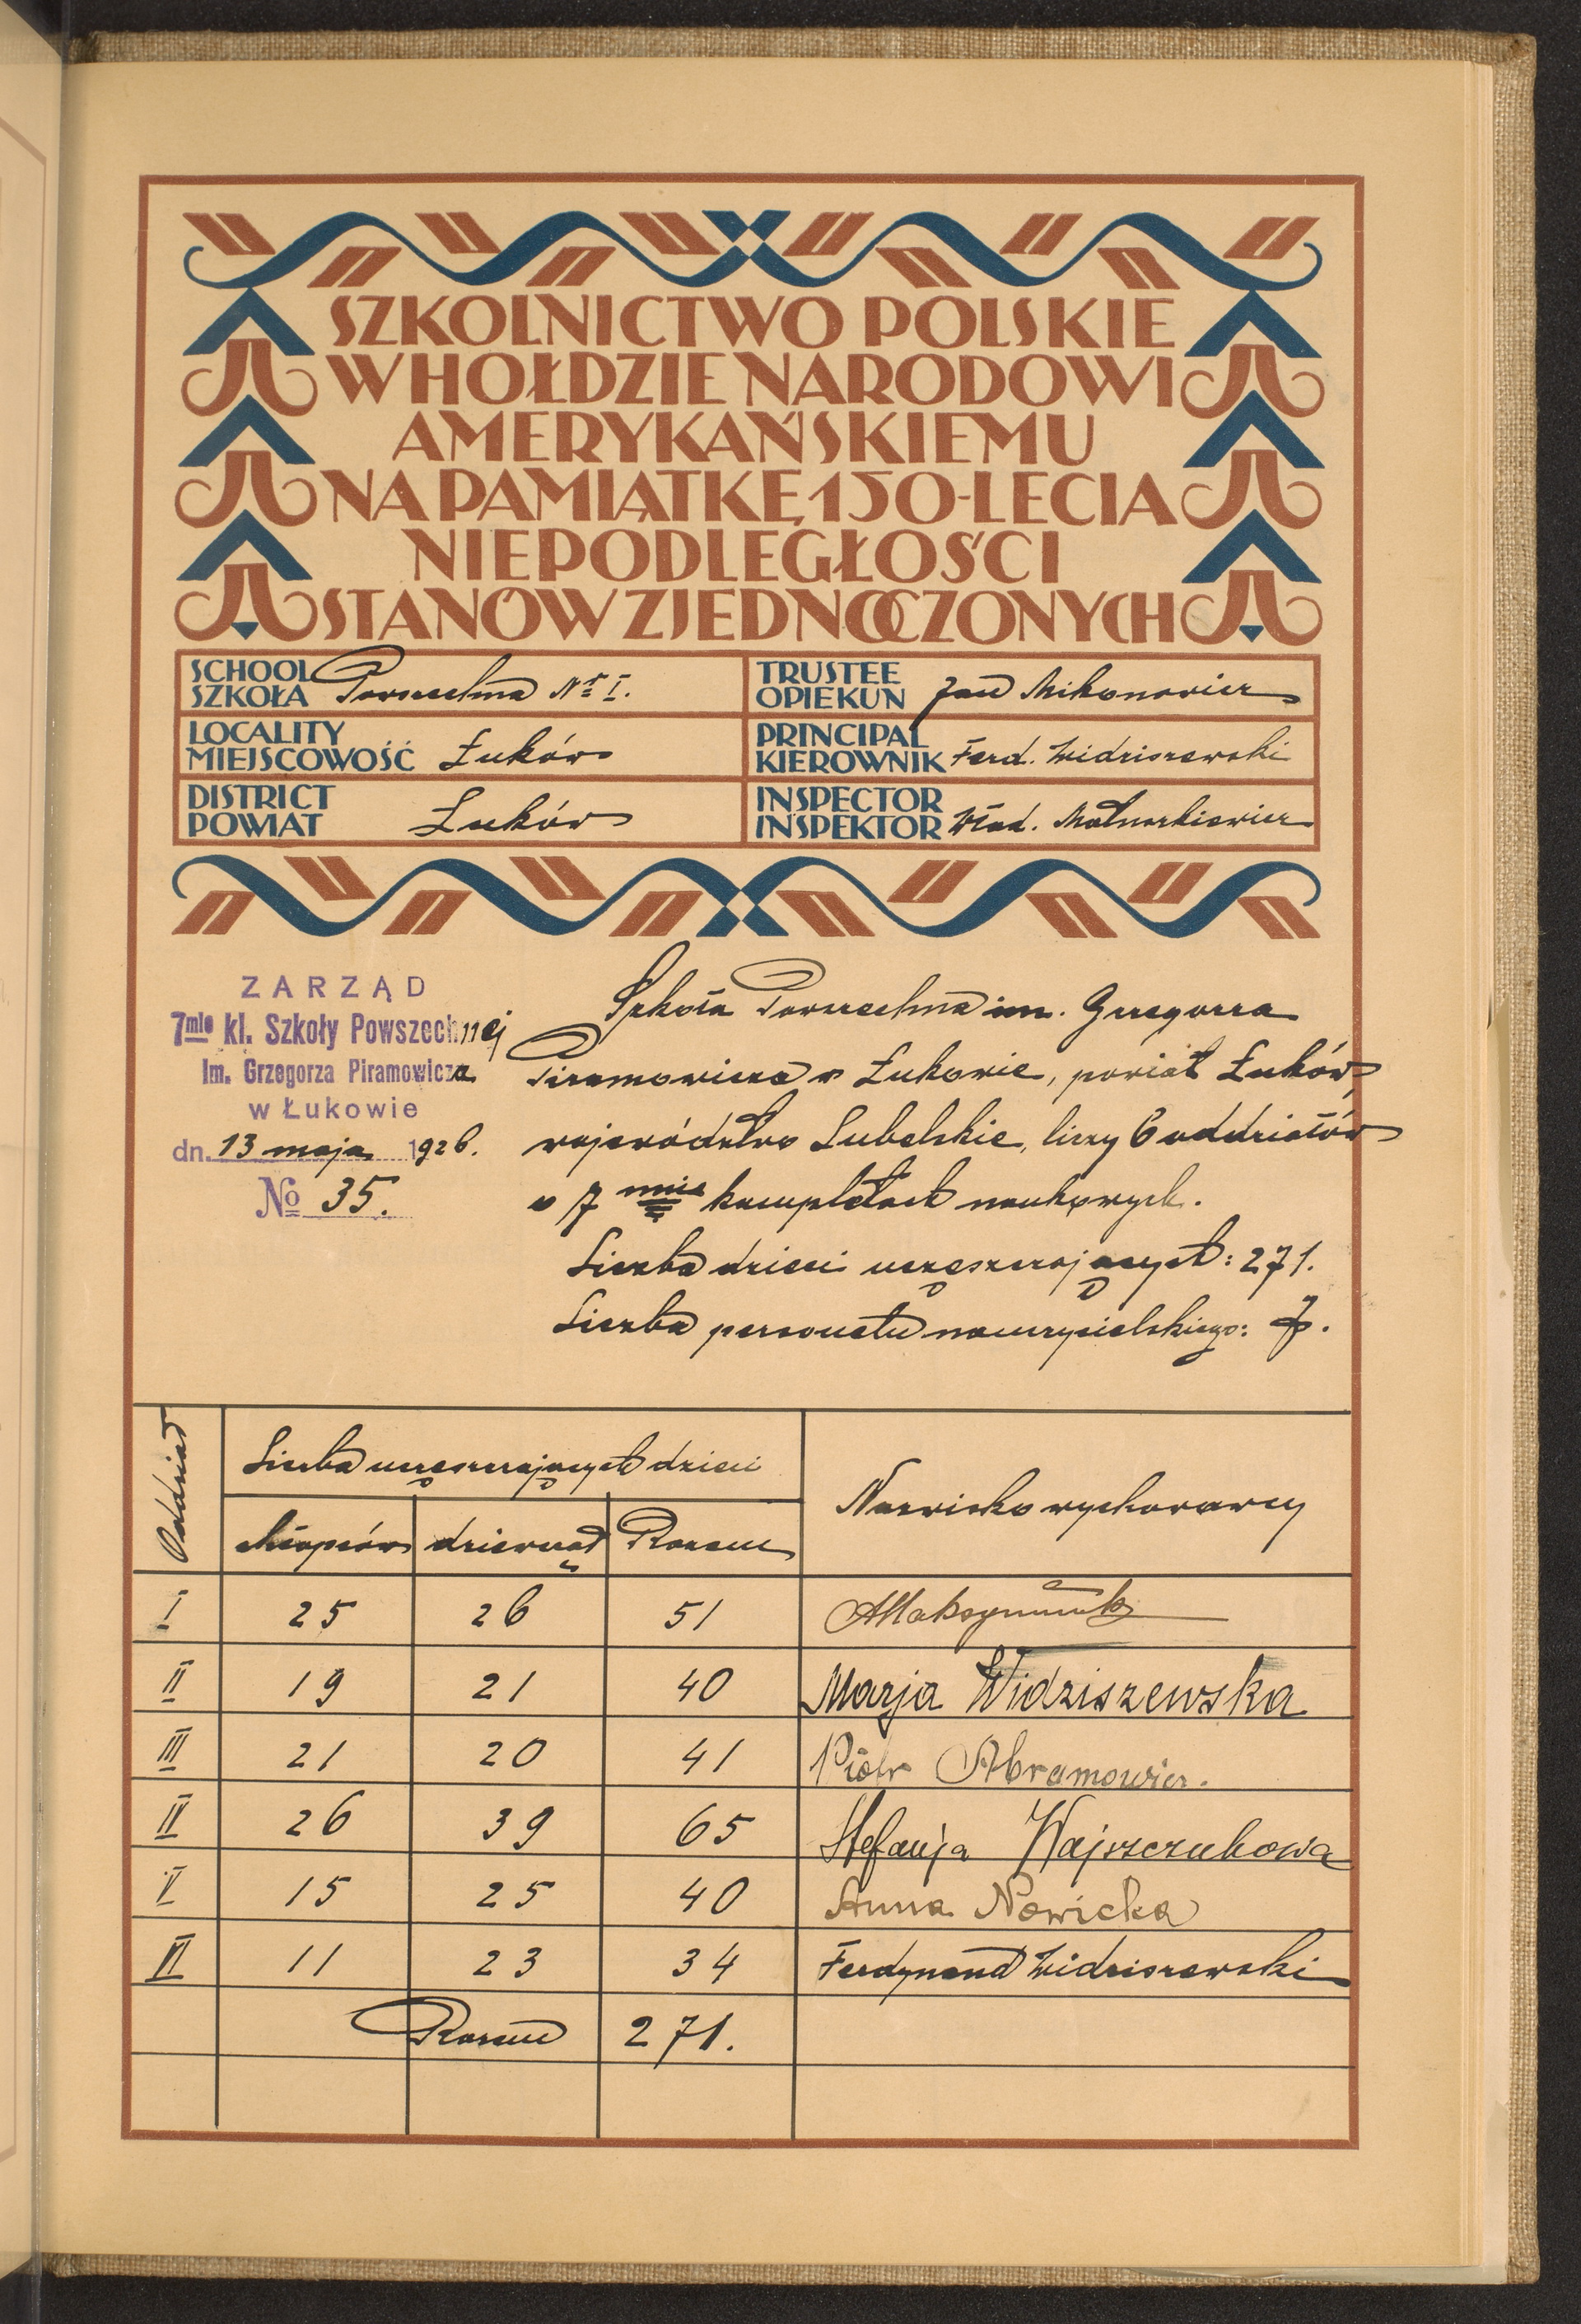 SZKOLNICTWO POLSKIE
W HOŁDZIE NARODOWI
AMERYKAŃSKIEMU
NA PAMIĄTKĘ 150-LECIA
NIEPODLEGŁOŚCI
STANÓW ZJEDNOCZONYCH
SCHOOL
SZKOŁA Powszechna Nr I.
TRUSTEE
OPIEKUN Jan Mikonowicz
LOCALITY
MIEJSCOWOŚĆ Łuków
PRINCIPAL
KIEROWNIK Ferd. Widziszewski
DISTRICT
POWIAT Łuków
INSPECTOR
INSPEKTOR Wład.
ZARZĄD
7mio kl. Szkoły Powszechnej
Im. Grzegorza Piramowicza
w Łukowie
dn. 13 maja 1926.
No 35.
Szkoła Powszechna im. Grzegorza
Piramowicza w Łukowie, powiat Łuków,
województwo Lubelskie, liczy 6 oddziałów
o 7 mio kompletach naukowych.
Liczba dzieci uczęszczających: 271.
Liczba personelu nauczycielskiego: 7.
Oddział
Liczba uczęszczających dzieci
Nazwisko wychowawcy
chłopców dziewcząt Razem
I 25 26 51
II 19 21 40 Marja Widziszewska
III 21 20 41 Piotr Abramowicz.
IV 26 39 65 Stefanja Wajszczukowa
V 15 25 40 Anna Nowicka
VI 11 23 34 Ferdynand Widziszewski
Razem 271.